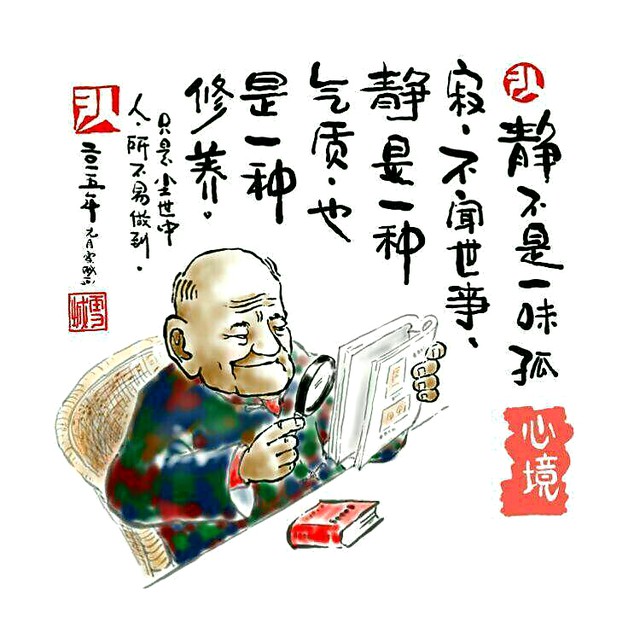 静不是一味孤
心境
寂、不闻世事、
静是一种
气质.也
是一种
修养。
只是尘世中
人.所不易做到.
二〇一五年元月